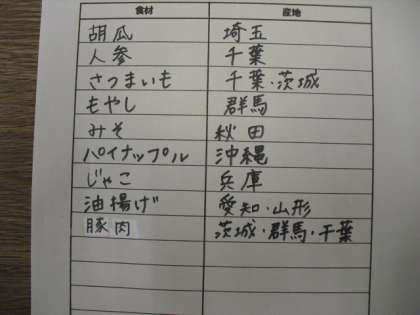 食材 産地
胡瓜 埼玉
人参 千葉
さつまいも 千葉・茨城
もやし 群馬
みそ 秋田
パイナップル 沖縄
じゃこ 兵庫
油揚げ 愛知・山形
豚肉 茨城・群馬・千葉